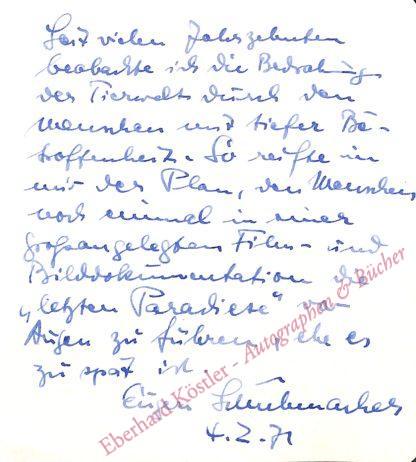 Seit vielen Jahrzehnten
beobachte ich die Bedrohung
der Tierwelt durch den
Menschen mit tiefer Be-
troffenheit. So reifte in
mir der Plan, den Menschen
noch einmal in einer
großangelegten Film- und
Bilddokumentation die
„letzten Paradiese" vor
Augen zu führen, ehe es
zu spät ist.
Eugen Schuhmacher
4.2.71
Eberhard Köstler - Autographen & Bücher